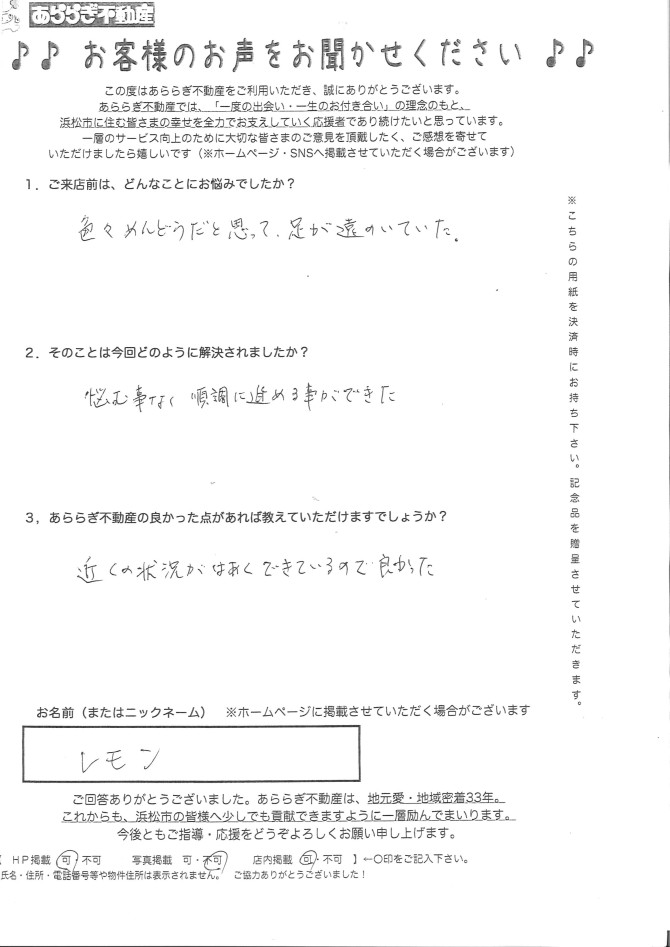 あららぎ不動産
♪♪ お客様のお声をお聞かせください ♪♪
この度はあららぎ不動産をご利用いただき、誠にありがとうございます。
あららぎ不動産では、「一度の出会い・一生のお付き合い」の理念のもと、
浜松市に住む皆さまの幸せを全力でお支えしていく応援者であり続けたいと思っています。
一層のサービス向上のために大切な皆さまのご意見を頂戴したく、ご感想を寄せて
いただけましたら嬉しいです（※ホームページ・SNSへ掲載させていただく場合がございます）
1．ご来店前は、どんなことにお悩みでしたか？
色々めんどうだと思って、足が遠のいていた。
2．そのことは今回どのように解決されましたか？
悩む事なく順調に進める事ができた
3，あららぎ不動産の良かった点があれば教えていただけますでしょうか？
近くの状況がはあくできているので良かった
※こちらの用紙を決済時にお持ち下さい。記念品を贈呈させていただきます。
お名前（またはニックネーム） ※ホームページに掲載させていただく場合がございます
レモン
ご回答ありがとうございました。あららぎ不動産は、地元愛・地域密着33年。
これからも、浜松市の皆様へ少しでも貢献できますように一層励んでまいります。
今後ともご指導・応援をどうぞよろしくお願い申し上げます。
【 HP掲載 可・不可 写真掲載 可・不可 店内掲載 可・不可 】←○印をご記入下さい。
氏名・住所・電話番号等や物件住所は表示されません。 ご協力ありがとうございました！